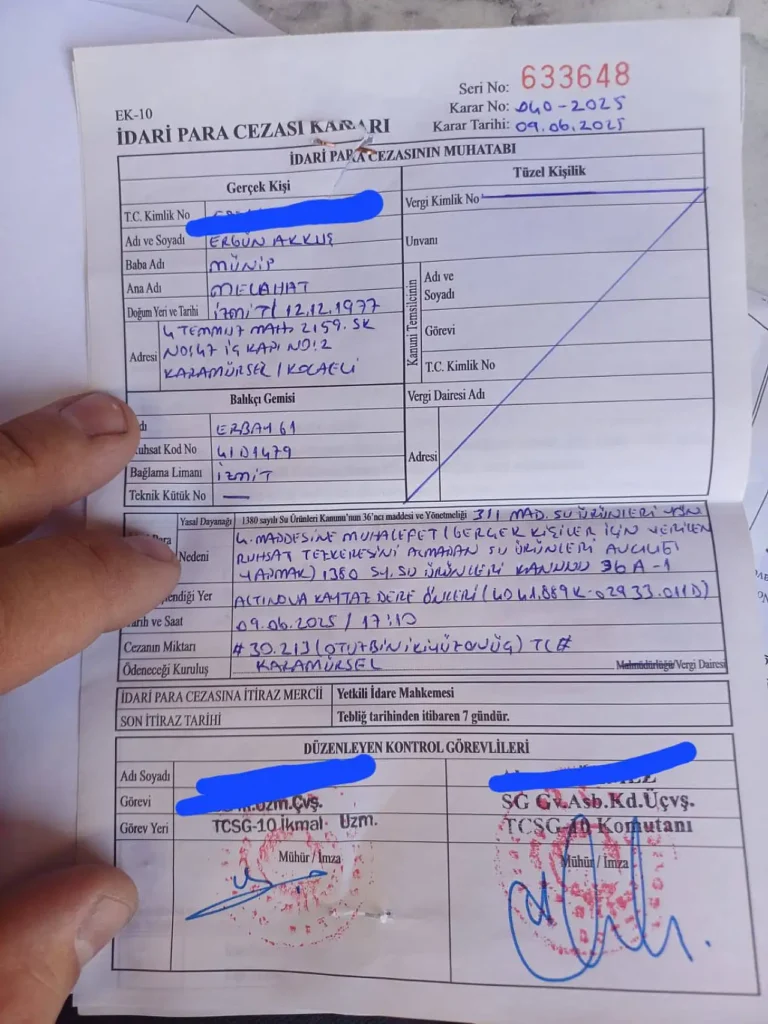 EK-10
Seri No: 633648
Karar No: 040-2025
Karar Tarihi: 09.06.2025
İDARİ PARA CEZASI KARARI
İDARİ PARA CEZASININ MUHATABI
Gerçek Kişi
T.C. Kimlik No
Adı ve Soyadı ERGÜN AKKUŞ
Baba Adı MÜNİP
Ana Adı MELAHAT
Doğum Yeri ve Tarihi İZMİT / 12.12.1977
Adresi 4 TEMMUZ MAH. 2159. SK
NO:47 İÇ KAPI NO:2
KARAMÜRSEL / KOCAELİ
Tüzel Kişilik
Vergi Kimlik No
Unvanı
Kanuni Temsilcinin
Adı ve
Soyadı
Görevi
T.C. Kimlik No
Vergi Dairesi Adı
Adresi
Balıkçı Gemisi
dı ERBAY 61
uhsat Kod No 41D1479
Bağlama Limanı İZMİT
Teknik Kütük No —
Yasal Dayanağı 1380 sayılı Su Ürünleri Kanunu'nun 36'ncı maddesi ve Yönetmeliği 311 MAD. SU ÜRÜNLERİ YÖN
Nedeni 4. MADDESİNE MUHALEFET (GERÇEK KİŞİLER İÇİN VERİLEN
RUHSAT TEZKERESİNİ ALMADAN SU ÜRÜNLERİ AVCILIĞI
YAPMAK) 1380 SY. SU ÜRÜNLERİ KANUNU 36 A-1
lendiği Yer ALTINOVA KAYTAZ DERE ÖNLERİ (40 41.889K-029 33.011D)
arih ve Saat 09.06.2025 / 17:10
Cezanın Miktarı # 30.213 (OTUZBİNİKİYÜZONÜÇ) TL #
Ödeneceği Kuruluş KARAMÜRSEL Malmüdürlüğü/Vergi Dairesi
İDARİ PARA CEZASINA İTİRAZ MERCİİ Yetkili İdare Mahkemesi
SON İTİRAZ TARİHİ Tebliğ tarihinden itibaren 7 gündür.
DÜZENLEYEN KONTROL GÖREVLİLERİ
Adı Soyadı
Görevi Uzm.Çvş. SG Gv.Asb.Kd.Üçvş.
Görev Yeri TCSG-10 İkmal Uzm. TCSG-10 Komutanı
Mühür / İmza Mühür / İmza